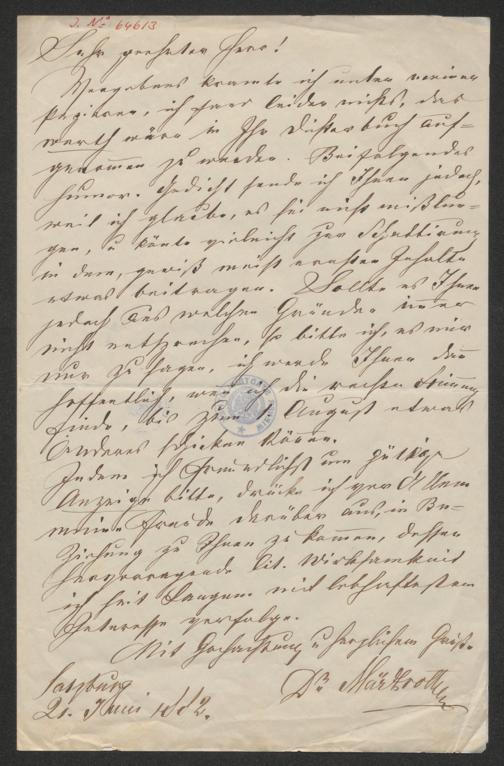 J. No 64613
Sehr geehrter Herr!
Vergebens kramte ich unter meinen
Papieren, ich fand leider nichts, das
werth wäre in Ihr Dichterbuch auf-
genommen zu werden. Beifolgendes
humor. Gedicht sende ich Ihnen jedoch,
weil ich glaube, es sei nicht mißlun-
gen, u könnte vielleicht zur Schattirung
in dem, gewiß meist ernsten Inhalte
etwas beitragen. Sollte es Ihnen
jedoch aus welchen Gründen immer
nicht entsprechen, so bitte ich, es mir
nur zu sagen, ich werde Ihnen dann
hoffentlich, wenn ich die rechte Stimmung
finde, bis zum August etwas
Anderes schicken können.
Indem ich freundlichst um gütige
Anzeige bitte, drücke ich vor Allem
meine Freude darüber aus, in Be-
ziehung zu Ihnen zu kommen, dessen
hervorragende lit. Wirksamkeit
ich seit Langem mit lebhaftestem
Interesse verfolge.
Mit Hochachtung u herzlichem Gruße
Salzburg
Dr Märzroth
21. Juni 1882.